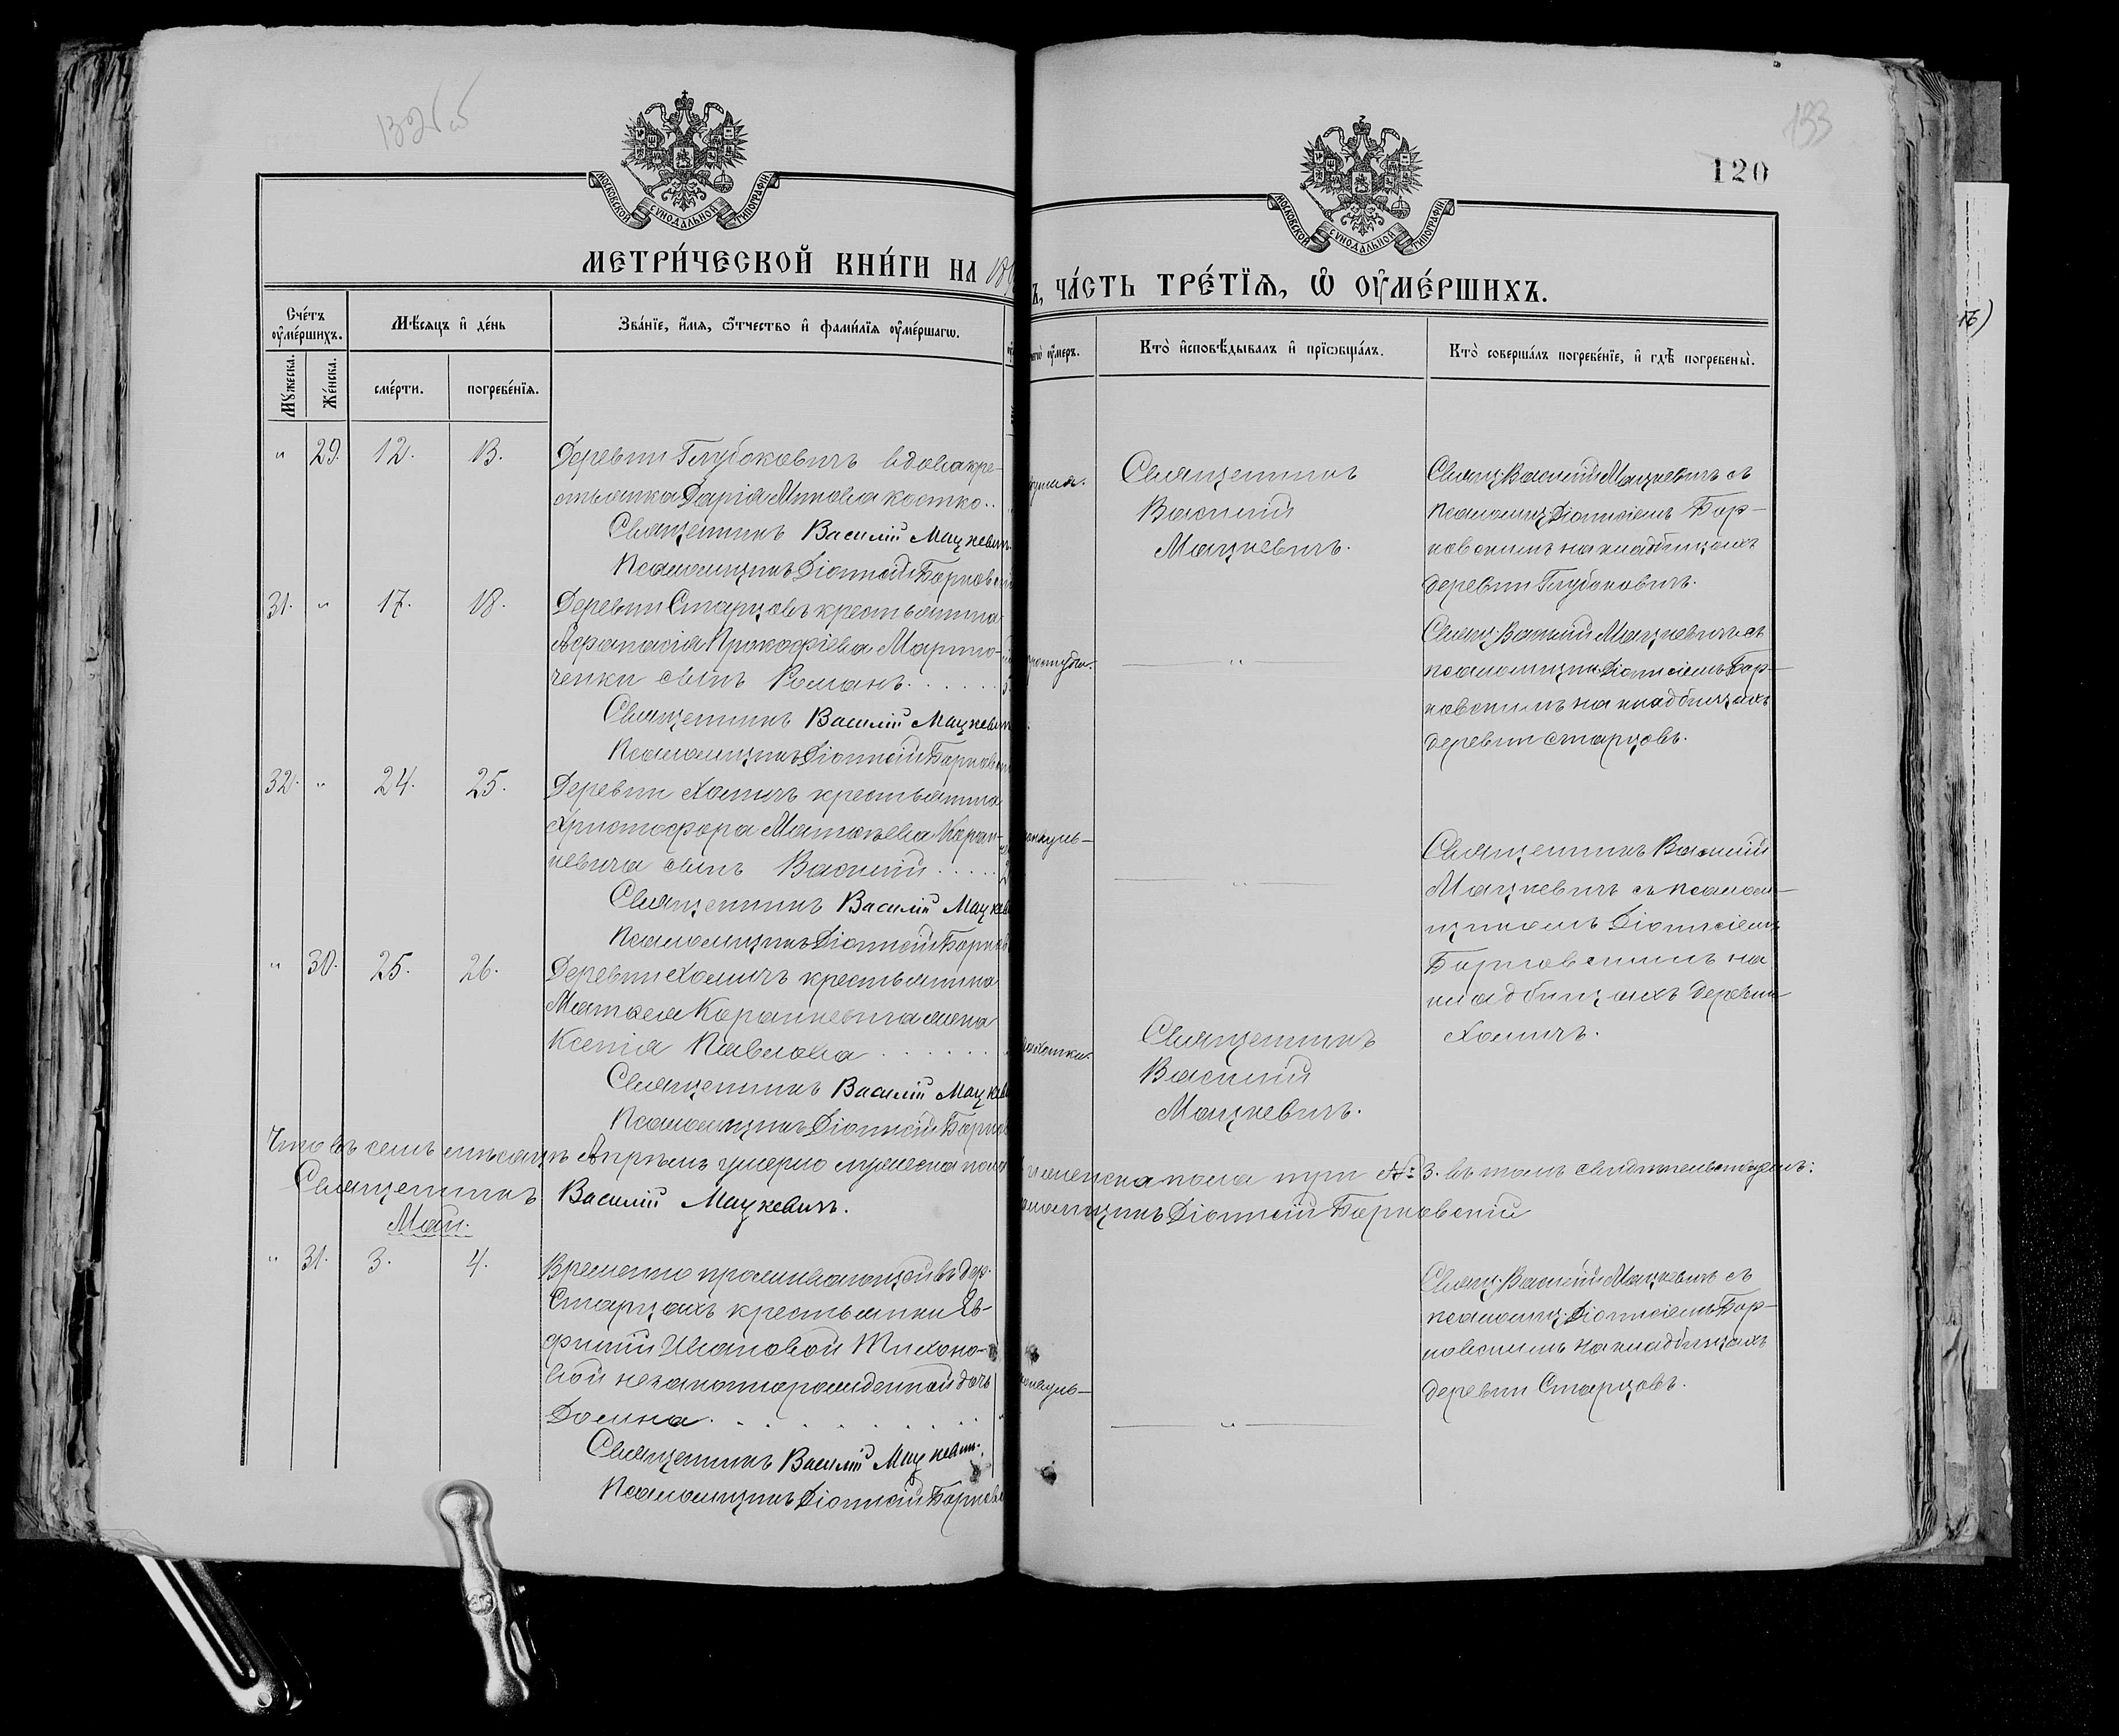 133
120
МОСКОВСКОЙ СѴНОДАЛЬНОЙ ТИПОГРАФІИ
МОСКОВСКОЙ СѴНОДАЛЬНОЙ ТИПОГРАФІИ
МЕТРИ́ЧЕСКОЙ КНИ́ГИ НА 189
Ъ, ЧА́СТЬ ТРЕ́ТЇѦ, Ѡ҆ ОУ҆МЕ́РШИХЪ.
Сче́тъ оу҆ме́ршихъ.
Мѹ́жеска.
Же́нска.
Мѣ́сѧцъ и҆ де́нь
сме́рти.
погребе́нїѧ.
Зва́нїе, и҆́мѧ, ѻ҆́тчество и҆ фами́лїѧ оу҆ме́ршагѡ.
чегѡ̀ оу҆́меръ.
Кто̀ и҆сповѣ́дывалъ и҆ прїѡбща́лъ.
Кто̀ соверша́лъ погребе́нїе, и҆ гдѣ̀ погребены̀.
" 29. 12. 13. Деревни Глубоковичъ вдова кре-
стьянка Дарія Минова Костко..
Священникъ Василій Мацкевичъ
Псаломщикъ Діонисій Барковскій
Священникъ
Василій
Мацкевичъ.
Свящ. Василій Мацкевичъ съ
псаломщ. Діонисіемъ Бар-
ковскимъ на кладбищахъ
деревни Глубоковичъ.
31. " 17. 18. Деревни Старцовъ крестьянина
Афанасія Прокофіева Марино-
ченки сынъ Романъ.......
Священникъ Василій Мацкевичъ
Псаломщикъ Діонисій Барковскій
"
Свящ. Василій Мацкевичъ съ
псаломщик. Діонисіемъ Бар-
ковскимъ на кладбищахъ
деревни Старцовъ.
32. " 24. 25. Деревни Хомичъ крестьянина
Христофора Матѳеева Каран-
кевича сынъ Василій.....
Священникъ Василій Мацкев
Псаломщикъ Діонисій Барков
"
Священникъ Василій
Мацкевичъ съ псалом-
щикомъ Діонисіемъ
Барковскимъ на
кладбищахъ деревни
Хомичъ.
" 30. 25. 26. Деревни Хомичъ крестьянина
Матѳея Каранкевича жена
Ксенія Павлова.......
Священникъ Василій Мацкев
Псаломщикъ Діонисій Барков
Священникъ
Василій
Мацкевичъ.
Что въ семъ мѣсяцѣ Апрѣлѣ умерло мужеска пола женска пола три № 3. въ томъ свидѣтельствуемъ:
Священникъ Василій Мацкевичъ. Псаломщикъ Діонисій Барковскій
Май.
" 31. 3. 4. Временно проживающей въ дер.
Старцахъ крестьянки Ев-
фиміи Ивановой Тихоно-
вой незаконнорожденная дочь
Домна..........
Священникъ Василій Мацкевич.
Псаломщикъ Діонисій Барковс
"
Свящ. Василій Мацкевичъ съ
псаломщ. Діонисіемъ Бар-
ковскимъ на кладбищахъ
деревни Старцовъ.